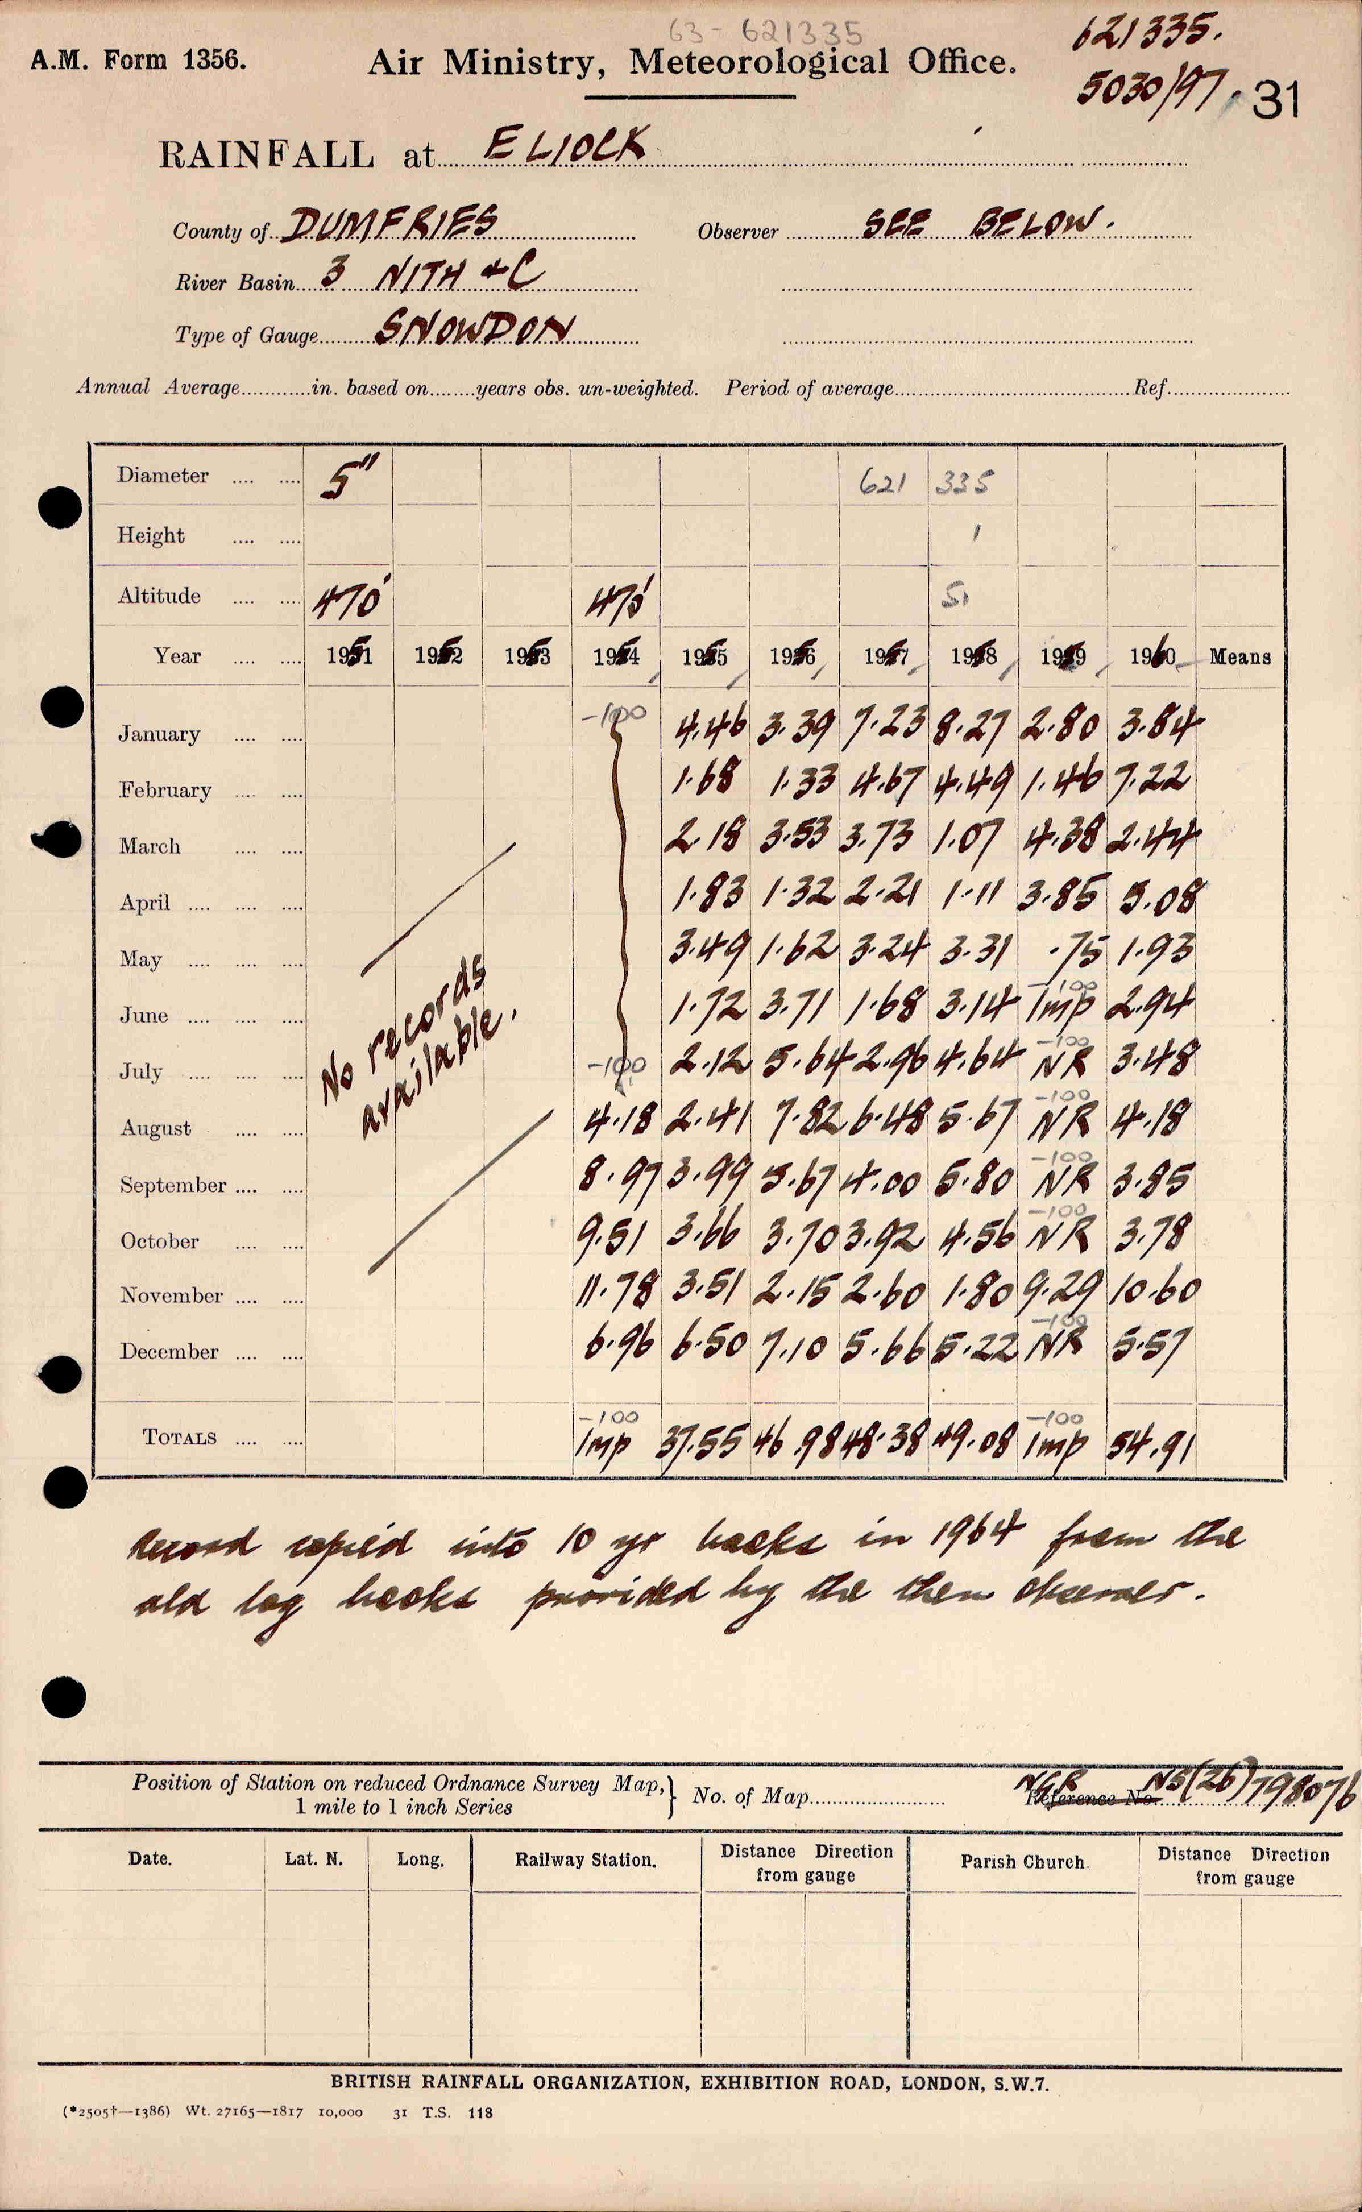 63 - 621335
621335.
A.M. Form 1356. Air Ministry, Meteorological Office.
5030/97. 31
RAINFALL at ELIOCK
County of DUMFRIES Observer SEE BELOW.
River Basin 3 NITH & C
Type of Gauge SNOWDON
Annual Average in. based on years obs. un-weighted. Period of average Ref.
Diameter 5" 621 335
Height 1
Altitude 470' 470'
Year 1951 1952 1953 1954 1955 1956 1957 1958 1959 1960 Means
January -100 4.46 3.39 7.23 8.27 2.80 3.84
February 1.68 1.33 4.67 4.49 1.46 7.22
March 2.18 3.53 3.73 1.07 4.38 2.44
April 1.83 1.32 2.21 1.11 3.85 5.08
May 3.49 1.62 3.24 3.31 .75 1.93
June 1.72 3.71 1.68 3.14 -100 Imp 2.94
July -100 2.12 5.64 2.96 4.64 -100 NR 3.48
No records
available.
August 4.18 2.41 7.82 6.48 5.67 -100 NR 4.18
September 8.97 3.99 5.67 4.00 5.80 -100 NR 3.85
October 9.51 3.66 3.70 3.92 4.56 -100 NR 3.78
November 11.78 3.51 2.15 2.60 1.80 9.29 10.60
December 6.96 6.50 7.10 5.66 5.22 -100 NR 5.57
TOTALS -100 Imp 37.55 46.98 48.38 49.08 -100 Imp 54.91
Record copied into 10 yr books in 1964 from the
old log books provided by the then observer.
Position of Station on reduced Ordnance Survey Map, No. of Map NGR Reference No. NS(26)798076
1 mile to 1 inch Series
Date. Lat. N. Long. Railway Station. Distance Direction from gauge Parish Church. Distance Direction from gauge
BRITISH RAINFALL ORGANIZATION, EXHIBITION ROAD, LONDON, S.W.7.
(*2505†—1386) Wt. 27165—1817 10,000 31 T.S. 118